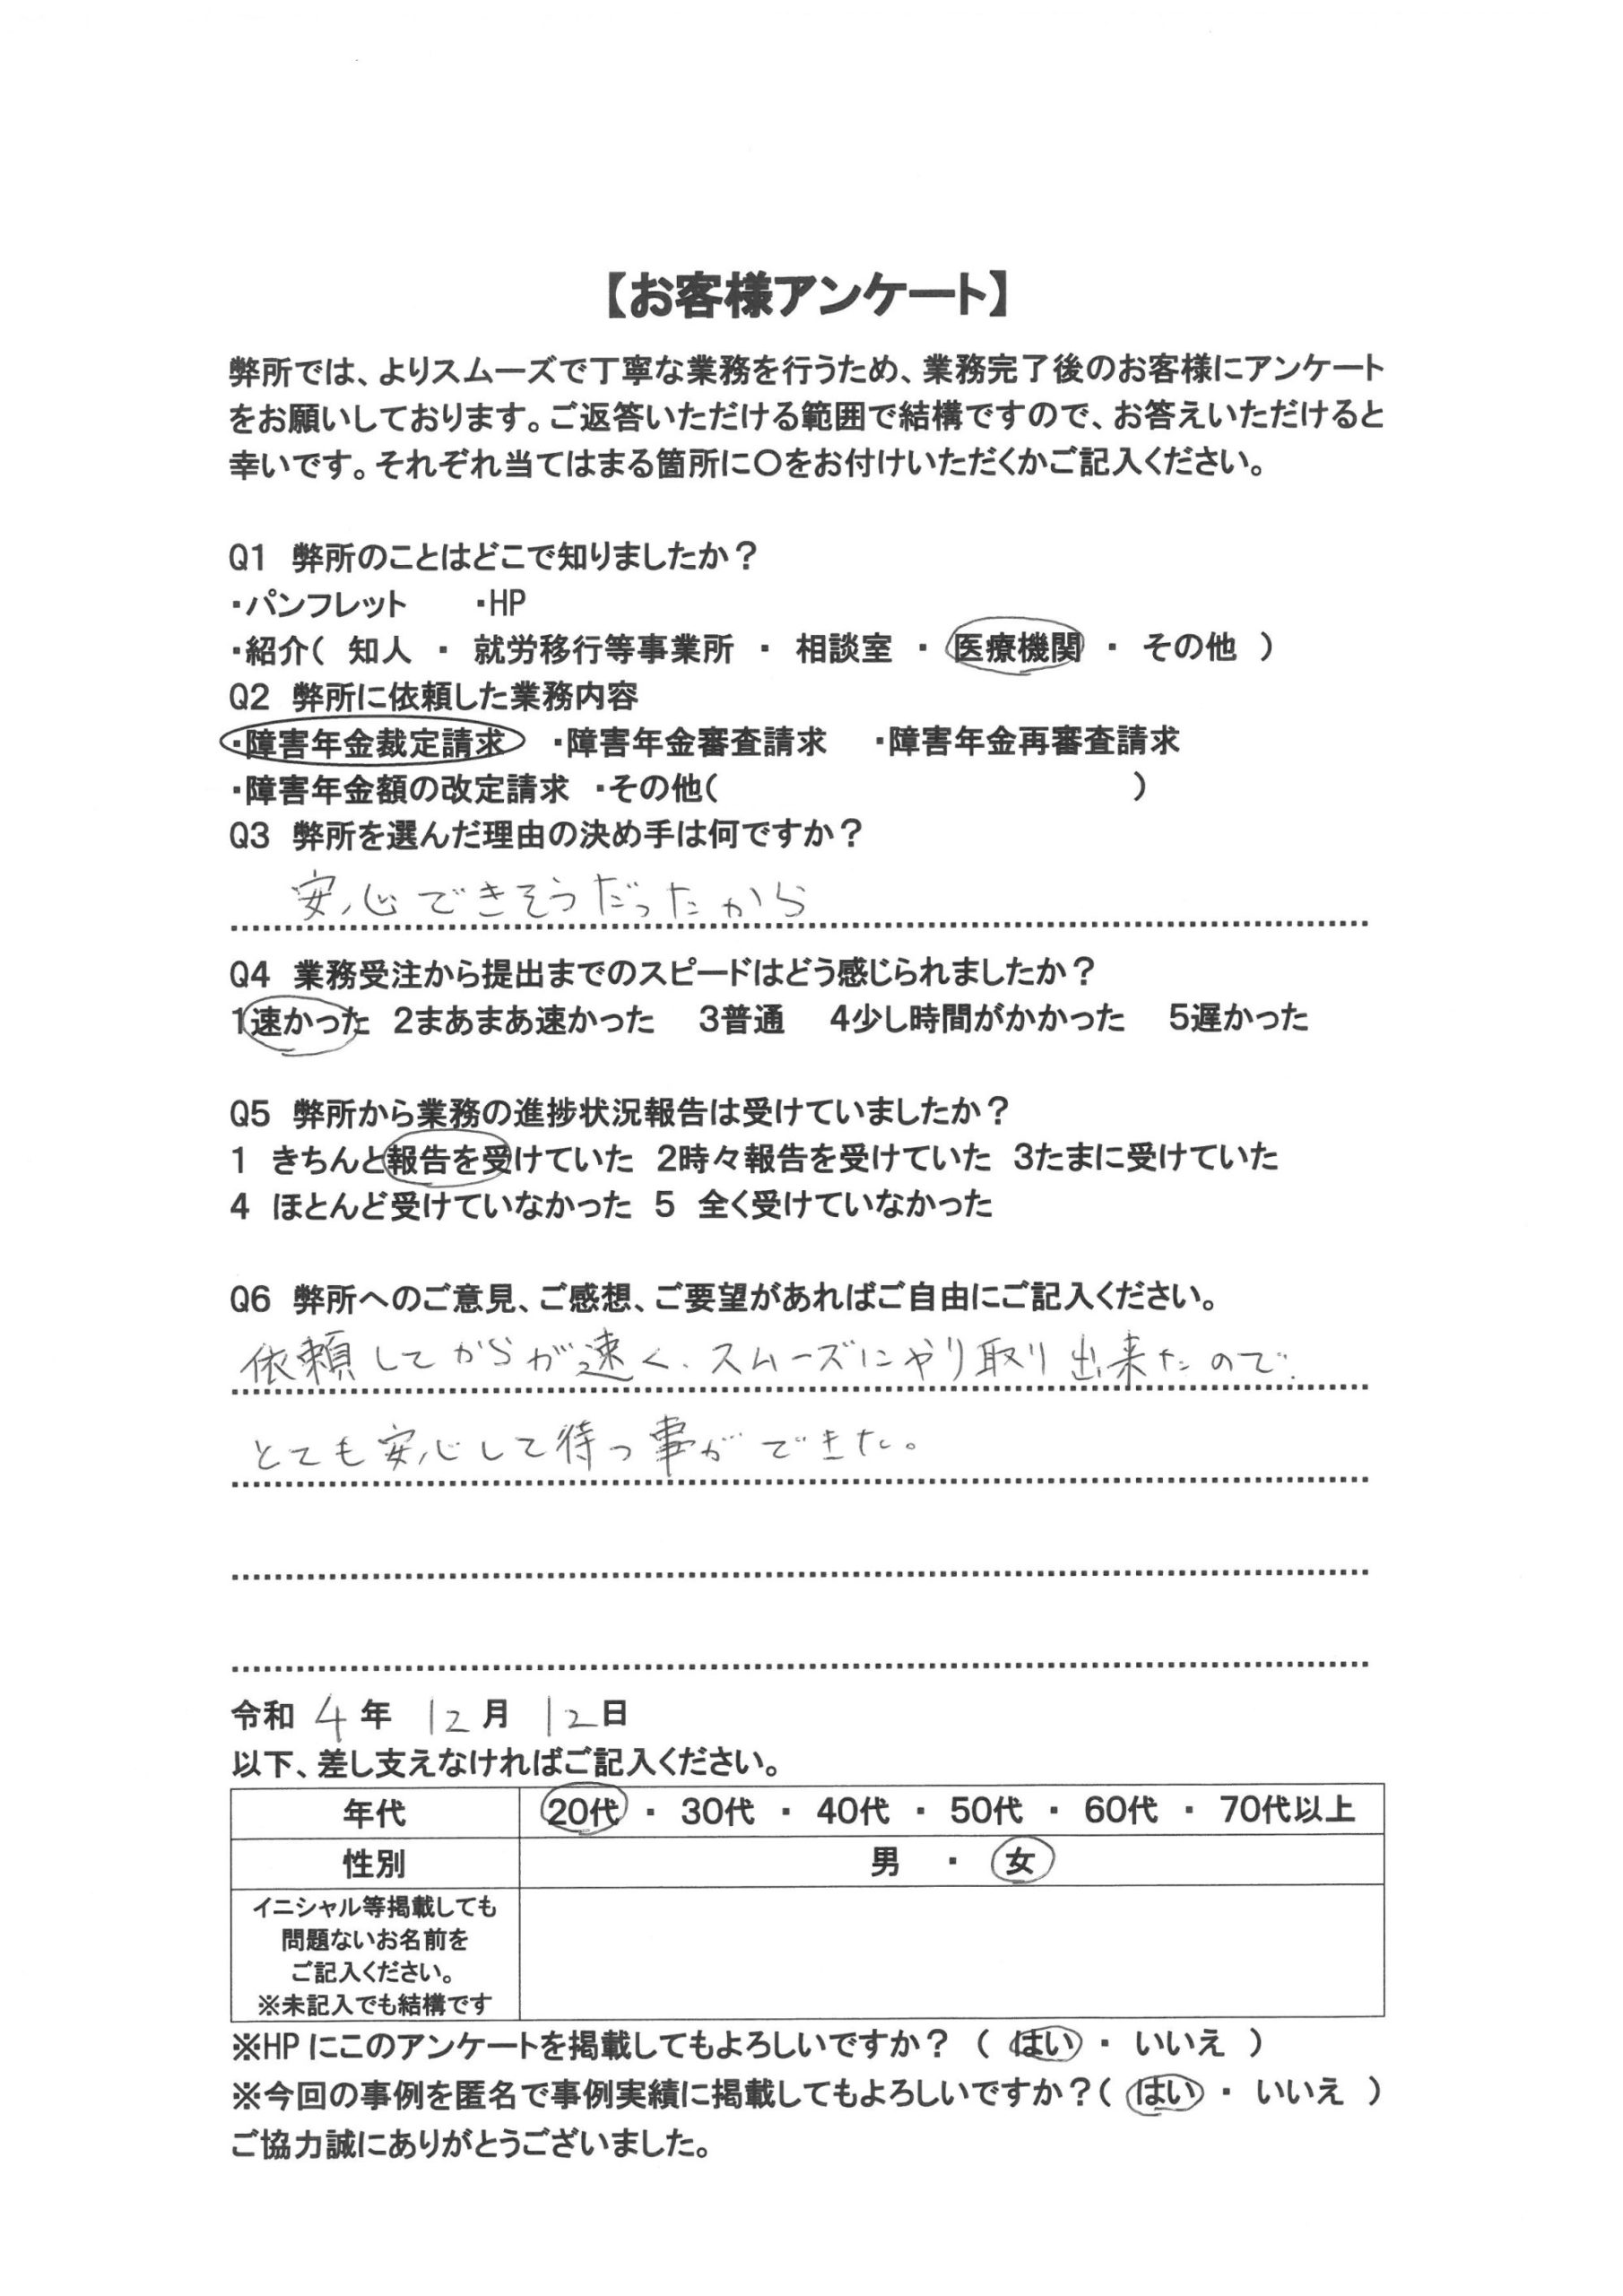 【お客様アンケート】
弊所では、よりスムーズで丁寧な業務を行うため、業務完了後のお客様にアンケート
をお願いしております。ご返答いただける範囲で結構ですので、お答えいただけると
幸いです。それぞれ当てはまる箇所に〇をお付けいただくかご記入ください。
Q1　弊所のことはどこで知りましたか？
・パンフレット　　・HP
・紹介（　知人　・　就労移行等事業所　・　相談室　・　医療機関　・　その他　）
Q2　弊所に依頼した業務内容
・障害年金裁定請求　・障害年金審査請求　・障害年金再審査請求
・障害年金額の改定請求　・その他（　　　　　　　　　　　　　）
Q3　弊所を選んだ理由の決め手は何ですか？
安心できそうだったから
Q4　業務受注から提出までのスピードはどう感じられましたか？
1速かった　2まあまあ速かった　3普通　4少し時間がかかった　5遅かった
Q5　弊所から業務の進捗状況報告は受けていましたか？
1　きちんと報告を受けていた　2時々報告を受けていた　3たまに受けていた
4　ほとんど受けていなかった　5　全く受けていなかった
Q6　弊所へのご意見、ご感想、ご要望があればご自由にご記入ください。
依頼してからが速く、スムーズにやり取り出来たので、
とても安心して待つ事ができた。
令和　4年　12月　12日
以下、差し支えなければご記入ください。
年代　20代　・　30代　・　40代　・　50代　・　60代　・　70代以上
性別　男　・　女
イニシャル等掲載しても
問題ないお名前を
ご記入ください。
※未記入でも結構です
※HPにこのアンケートを掲載してもよろしいですか？（　はい　・　いいえ　）
※今回の事例を匿名で事例実績に掲載してもよろしいですか？（　はい　・　いいえ　）
ご協力誠にありがとうございました。